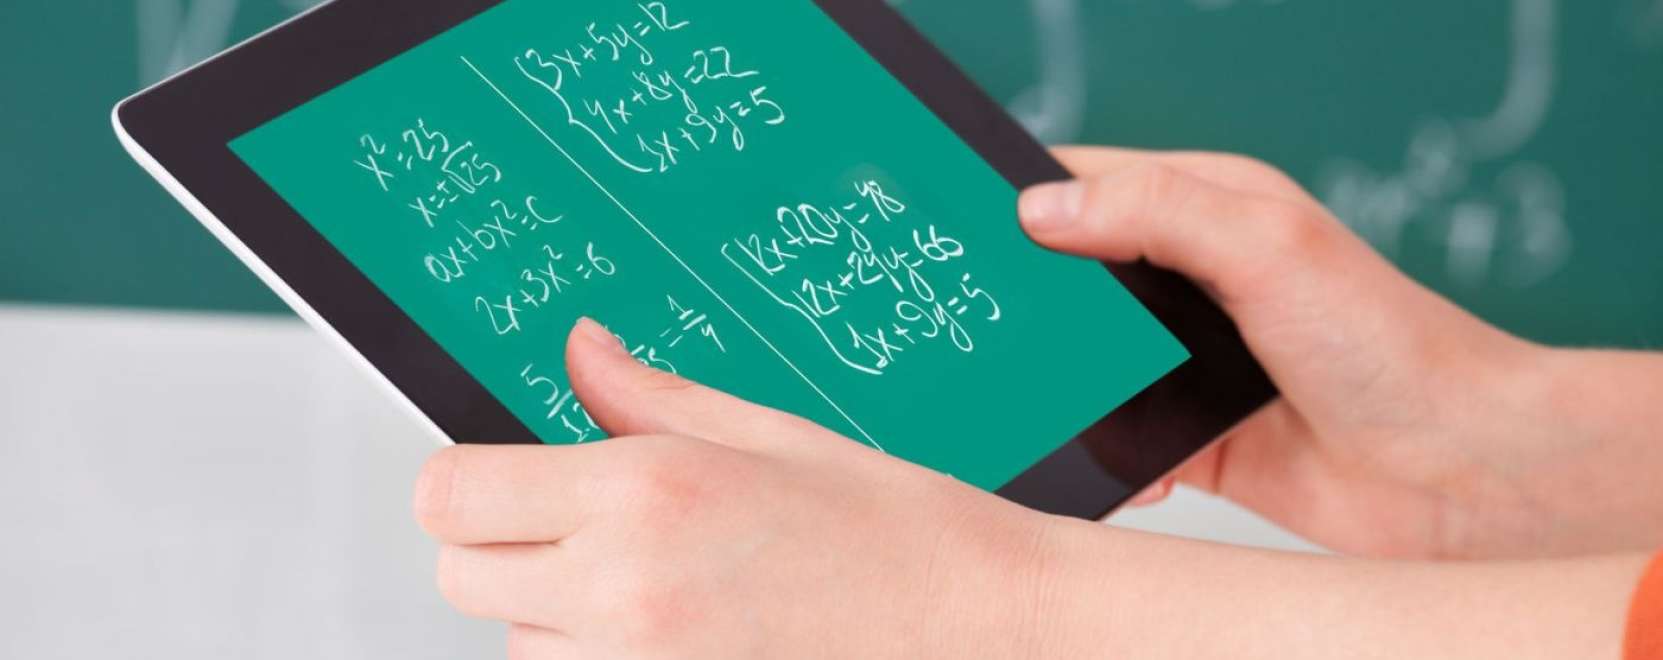 x²=25
x=±√25
ax+bx²=c
2x+3x²=6
=1/4
3x+5y=12
4x+8y=22
1x+9y=5
12x+20y=48
12x+24y=66
1x+9y=5